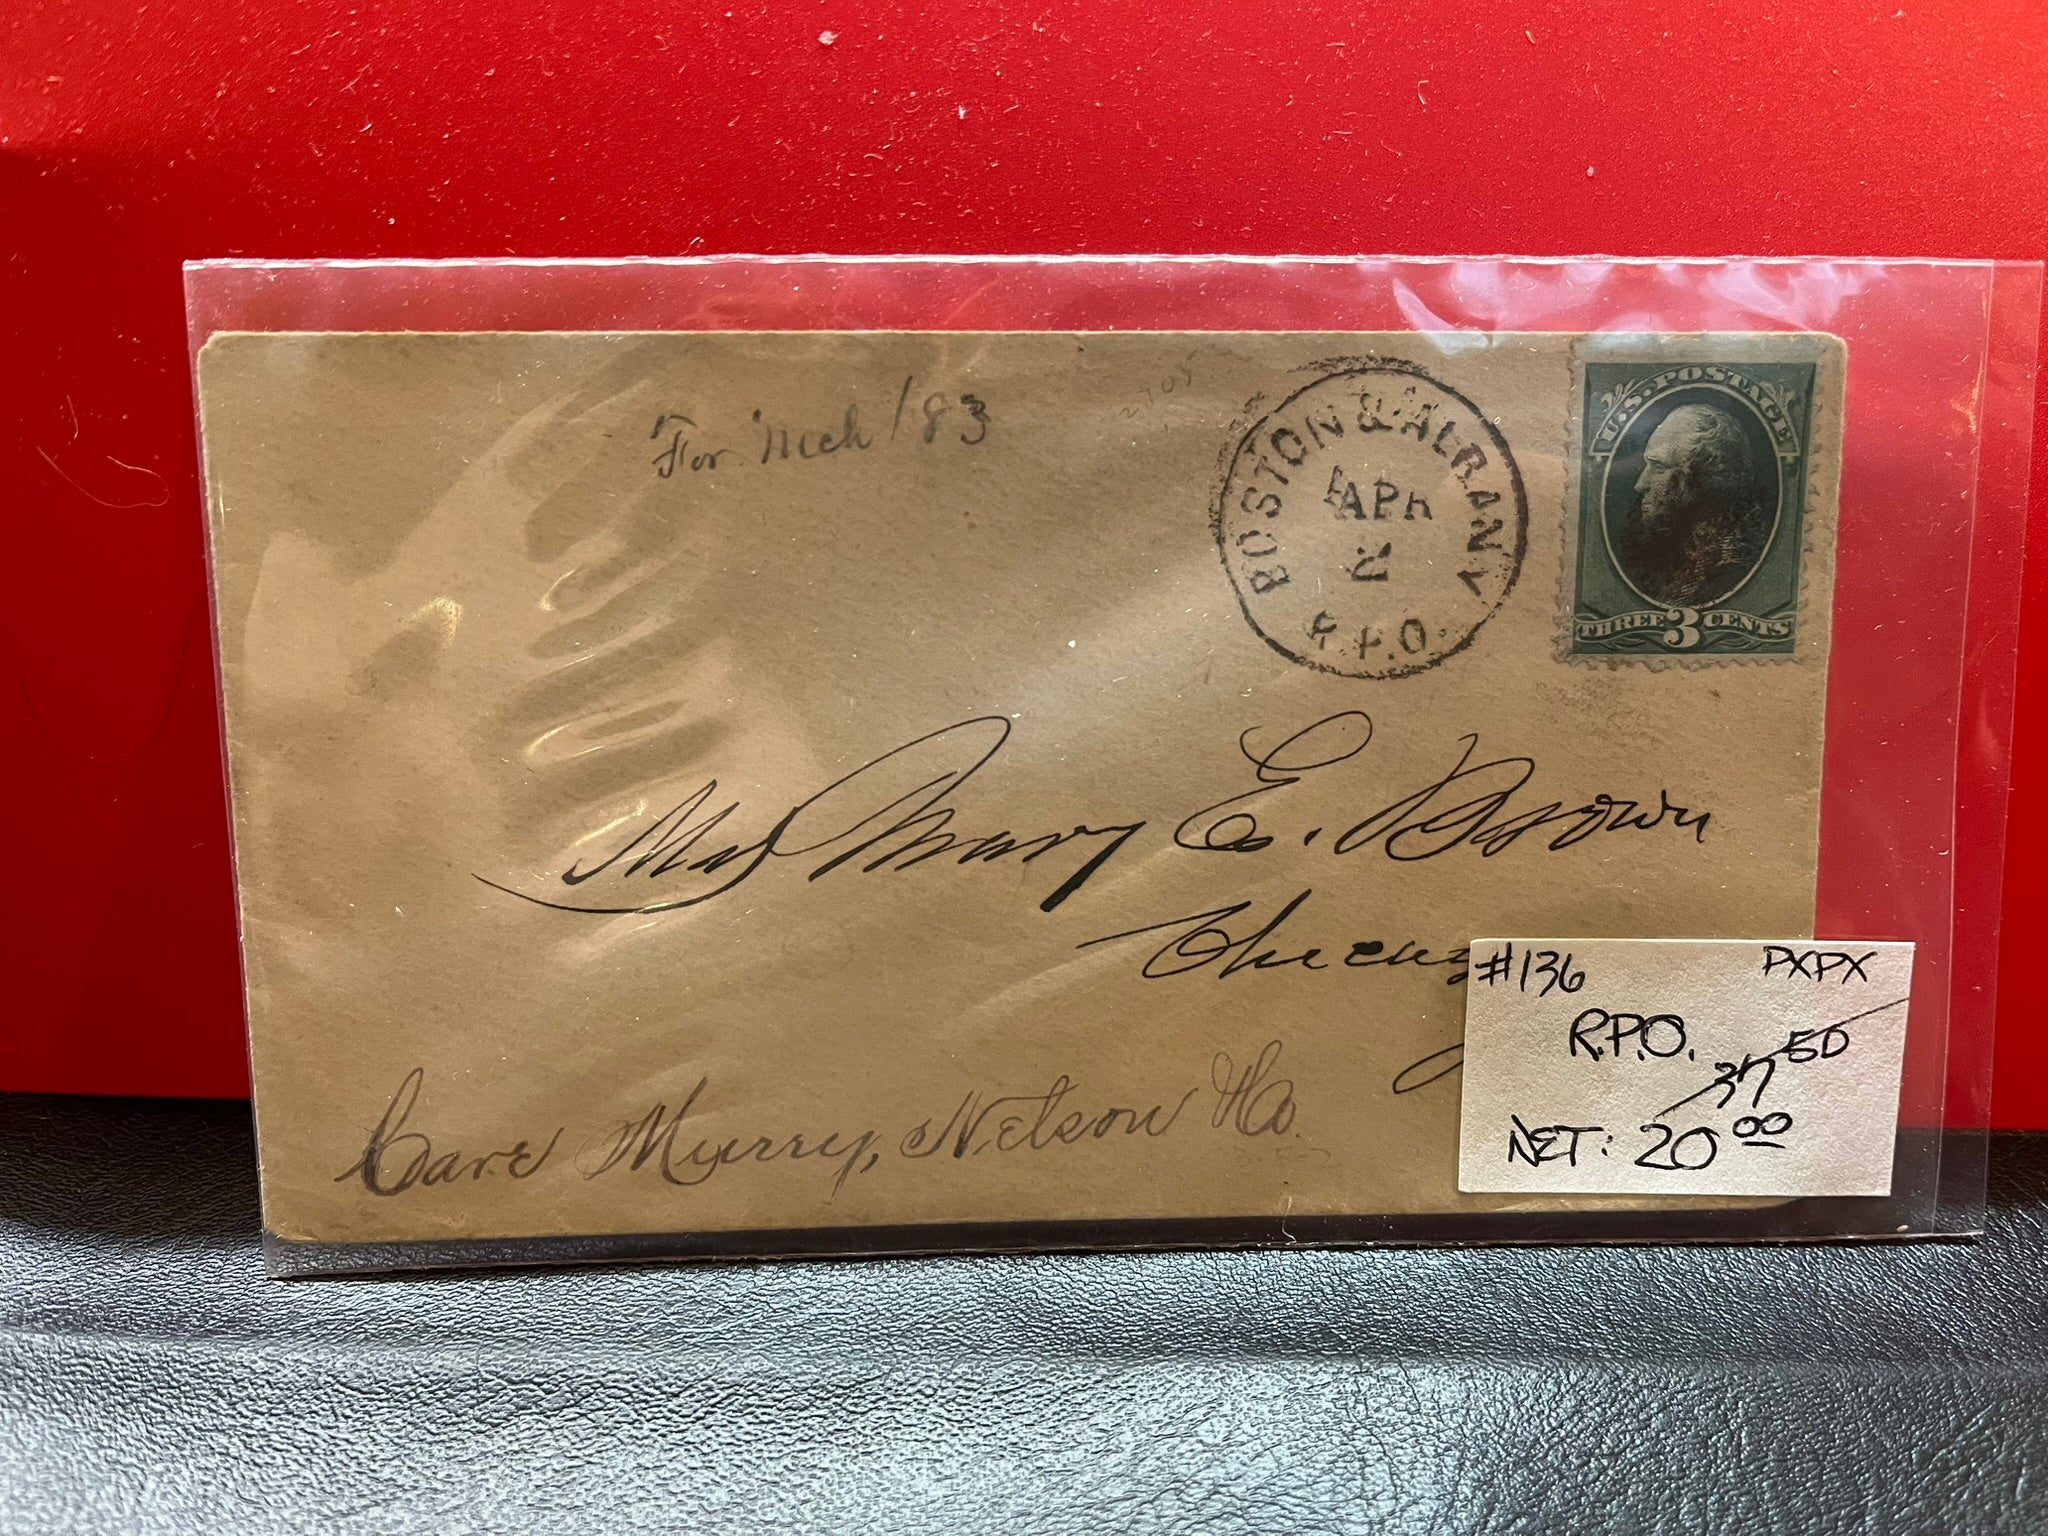 For Mch /83
2705
BOSTON & ALBANY
APR
2
R.P.O.
U.S. POSTAGE
THREE 3 CENTS
Mrs Mary E. Brown
#136 PXPX
R.P.O.
37 50
NET: 20 00
Care Murray, Nelson & Co.